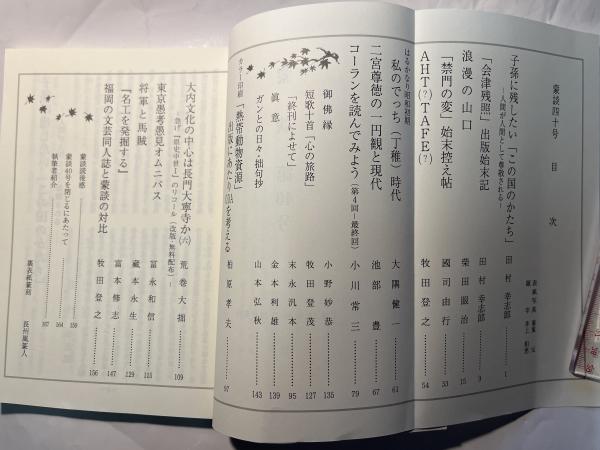 蒙談四十号 目次
表紙写真
題字 井上
子孫に残したい「この国のかたち」 田村幸志郎 1
―人間が人間として尊敬される―
「会津残照」出版始末記 田村幸志郎 9
浪漫の山口 柴田眼治 15
「禁門の変」始末控え帖 國司由行 53
AHT(?)TAFE(?) 牧田登之 54
はるかなり昭和初期
私のでっち(丁稚)時代 大隅健一 61
二宮尊徳の一円観と現代 池部豊 67
コーランを読んでみよう(第4回―最終回) 小川常三 79
御佛縁 小野妙恭 135
短歌十首「心の旅路」 牧田登茂 127
「終刊によせて」 末永汎本 95
眞意 金本利雄 139
ガンとの日々・拙句抄 山本弘秋 143
カラー印刷『熱帯動物資源』
出版にあたりODAを考える 柏原孝夫 97
大内文化の中心は長門大寧寺か(六) 荒巻大拙 109
急げ『県史中世Ⅰ』のリコール(改版・無料配布)!
東京愚考愚見オムニバス 冨永和信 115
将軍と馬賊 藏本永生 129
『名工を発掘する』 富本修志 147
福岡の文芸同人誌と蒙談の対比 牧田登之 156
蒙談読後感 159
蒙談40号を閉じるにあたって 164
執筆者紹介 167
裏表紙篆刻 長州風篆人